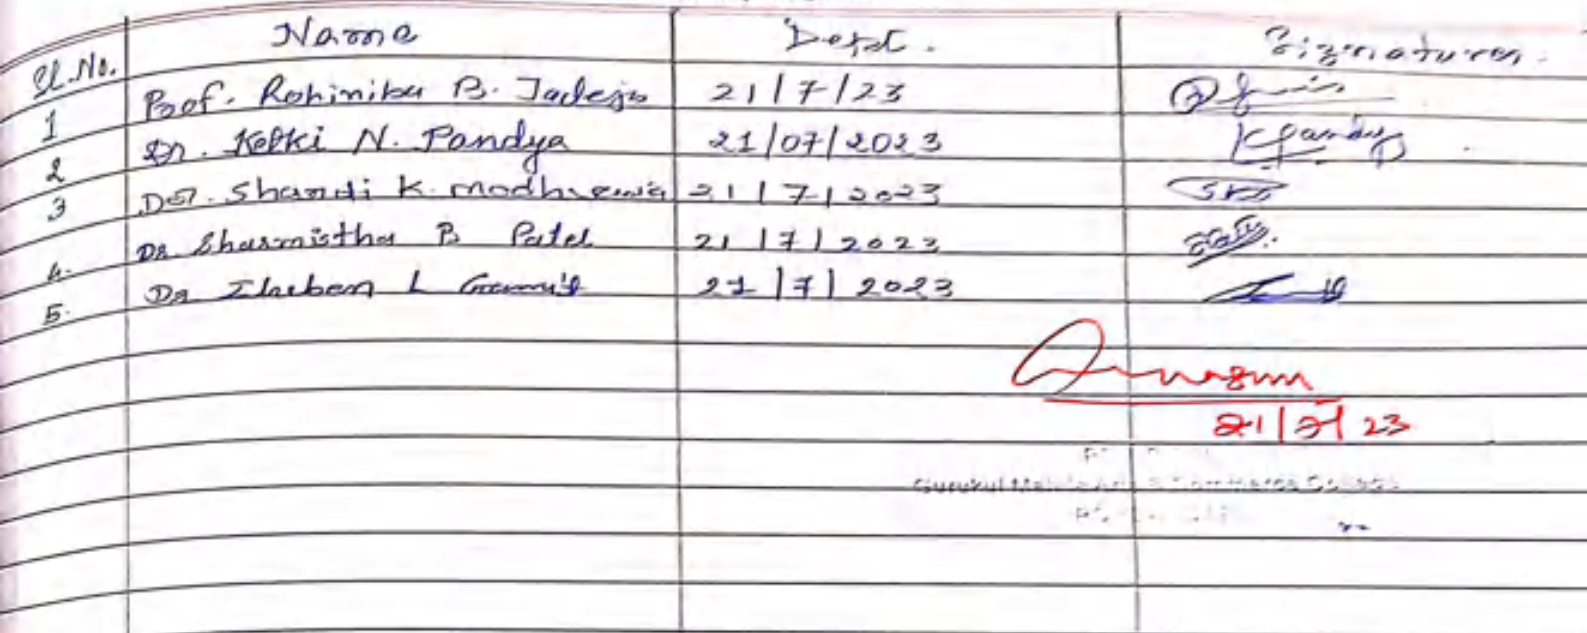 Sl.No. Name Dept. Signatures.
1 Prof. Rohiniba B. Jadeja 21/7/23
2 Dr. Ketki N. Pandya 21/07/2023 K Pandya
3 Dr. Shanti K. modhvadia 21/7/2023
4. Dr. Sharmistha B Patel 21/7/2023
5. Dr Ilaben L Gamit 21/7/2023
21/7/23
Gurukul Mahila Arts & Commerce College